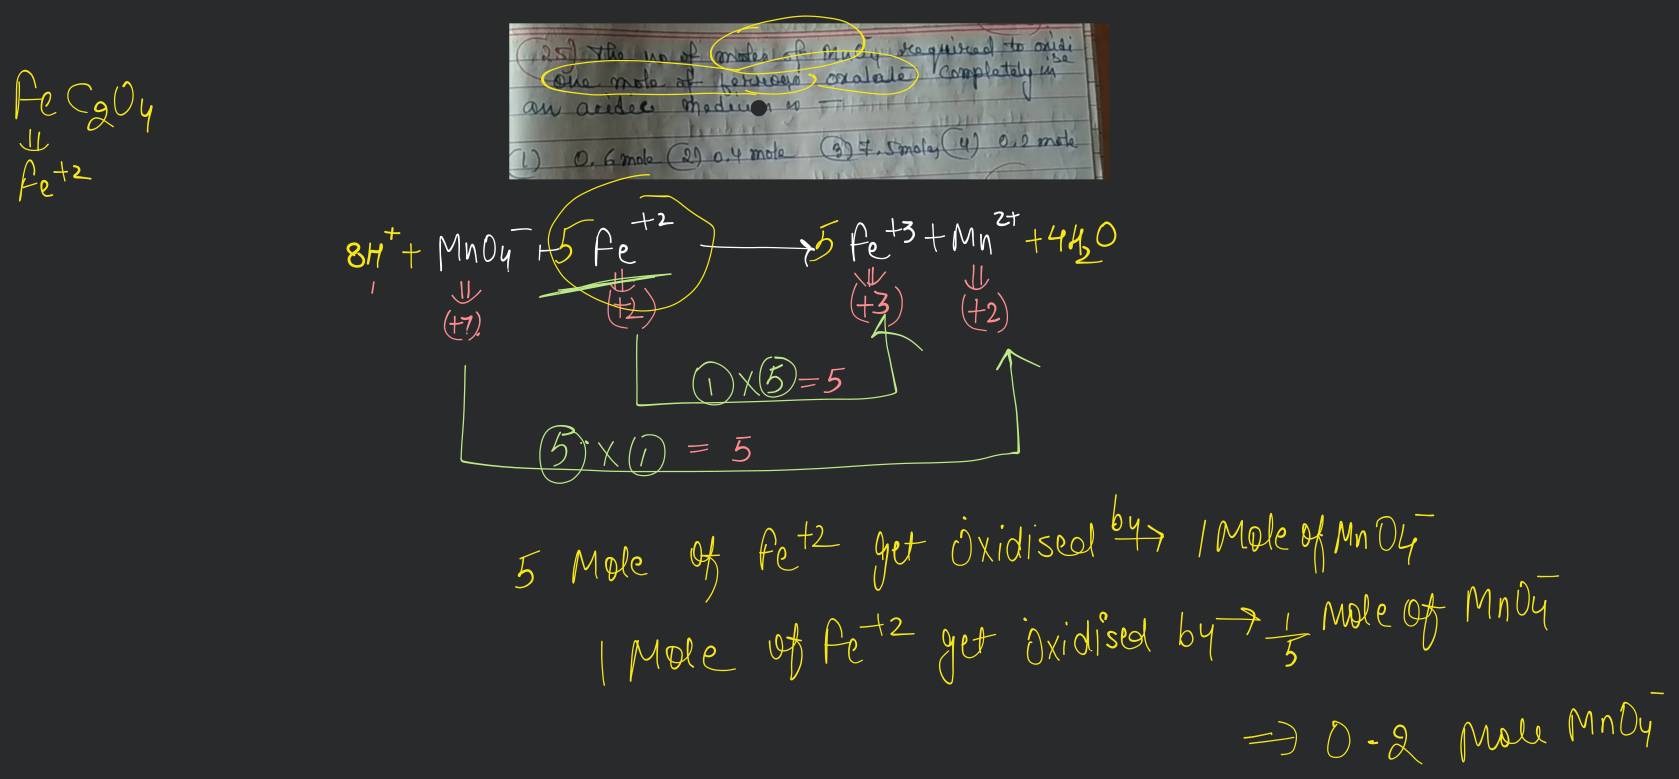 (25) The no of moles of MnO4⁻ required to oxidise
one mole of ferrous oxalate completely in
an acidic medium is —
(1) 0.6 mole (2) 0.4 mole (3) 7.5 moles (4) 0.2 mole
FeC2O4
⇓
Fe+2
8H+ + MnO4⁻ + 5 Fe+2 → 5 Fe+3 + Mn2+ + 4H2O
(+7) (+2) (+3) (+2)
1 × 5 = 5
5 × 1 = 5
5 Mole of Fe+2 get oxidised by → 1 Mole of MnO4⁻
1 Mole of Fe+2 get oxidised by → 1/5 Mole of MnO4⁻
⇒ 0.2 Mole MnO4⁻